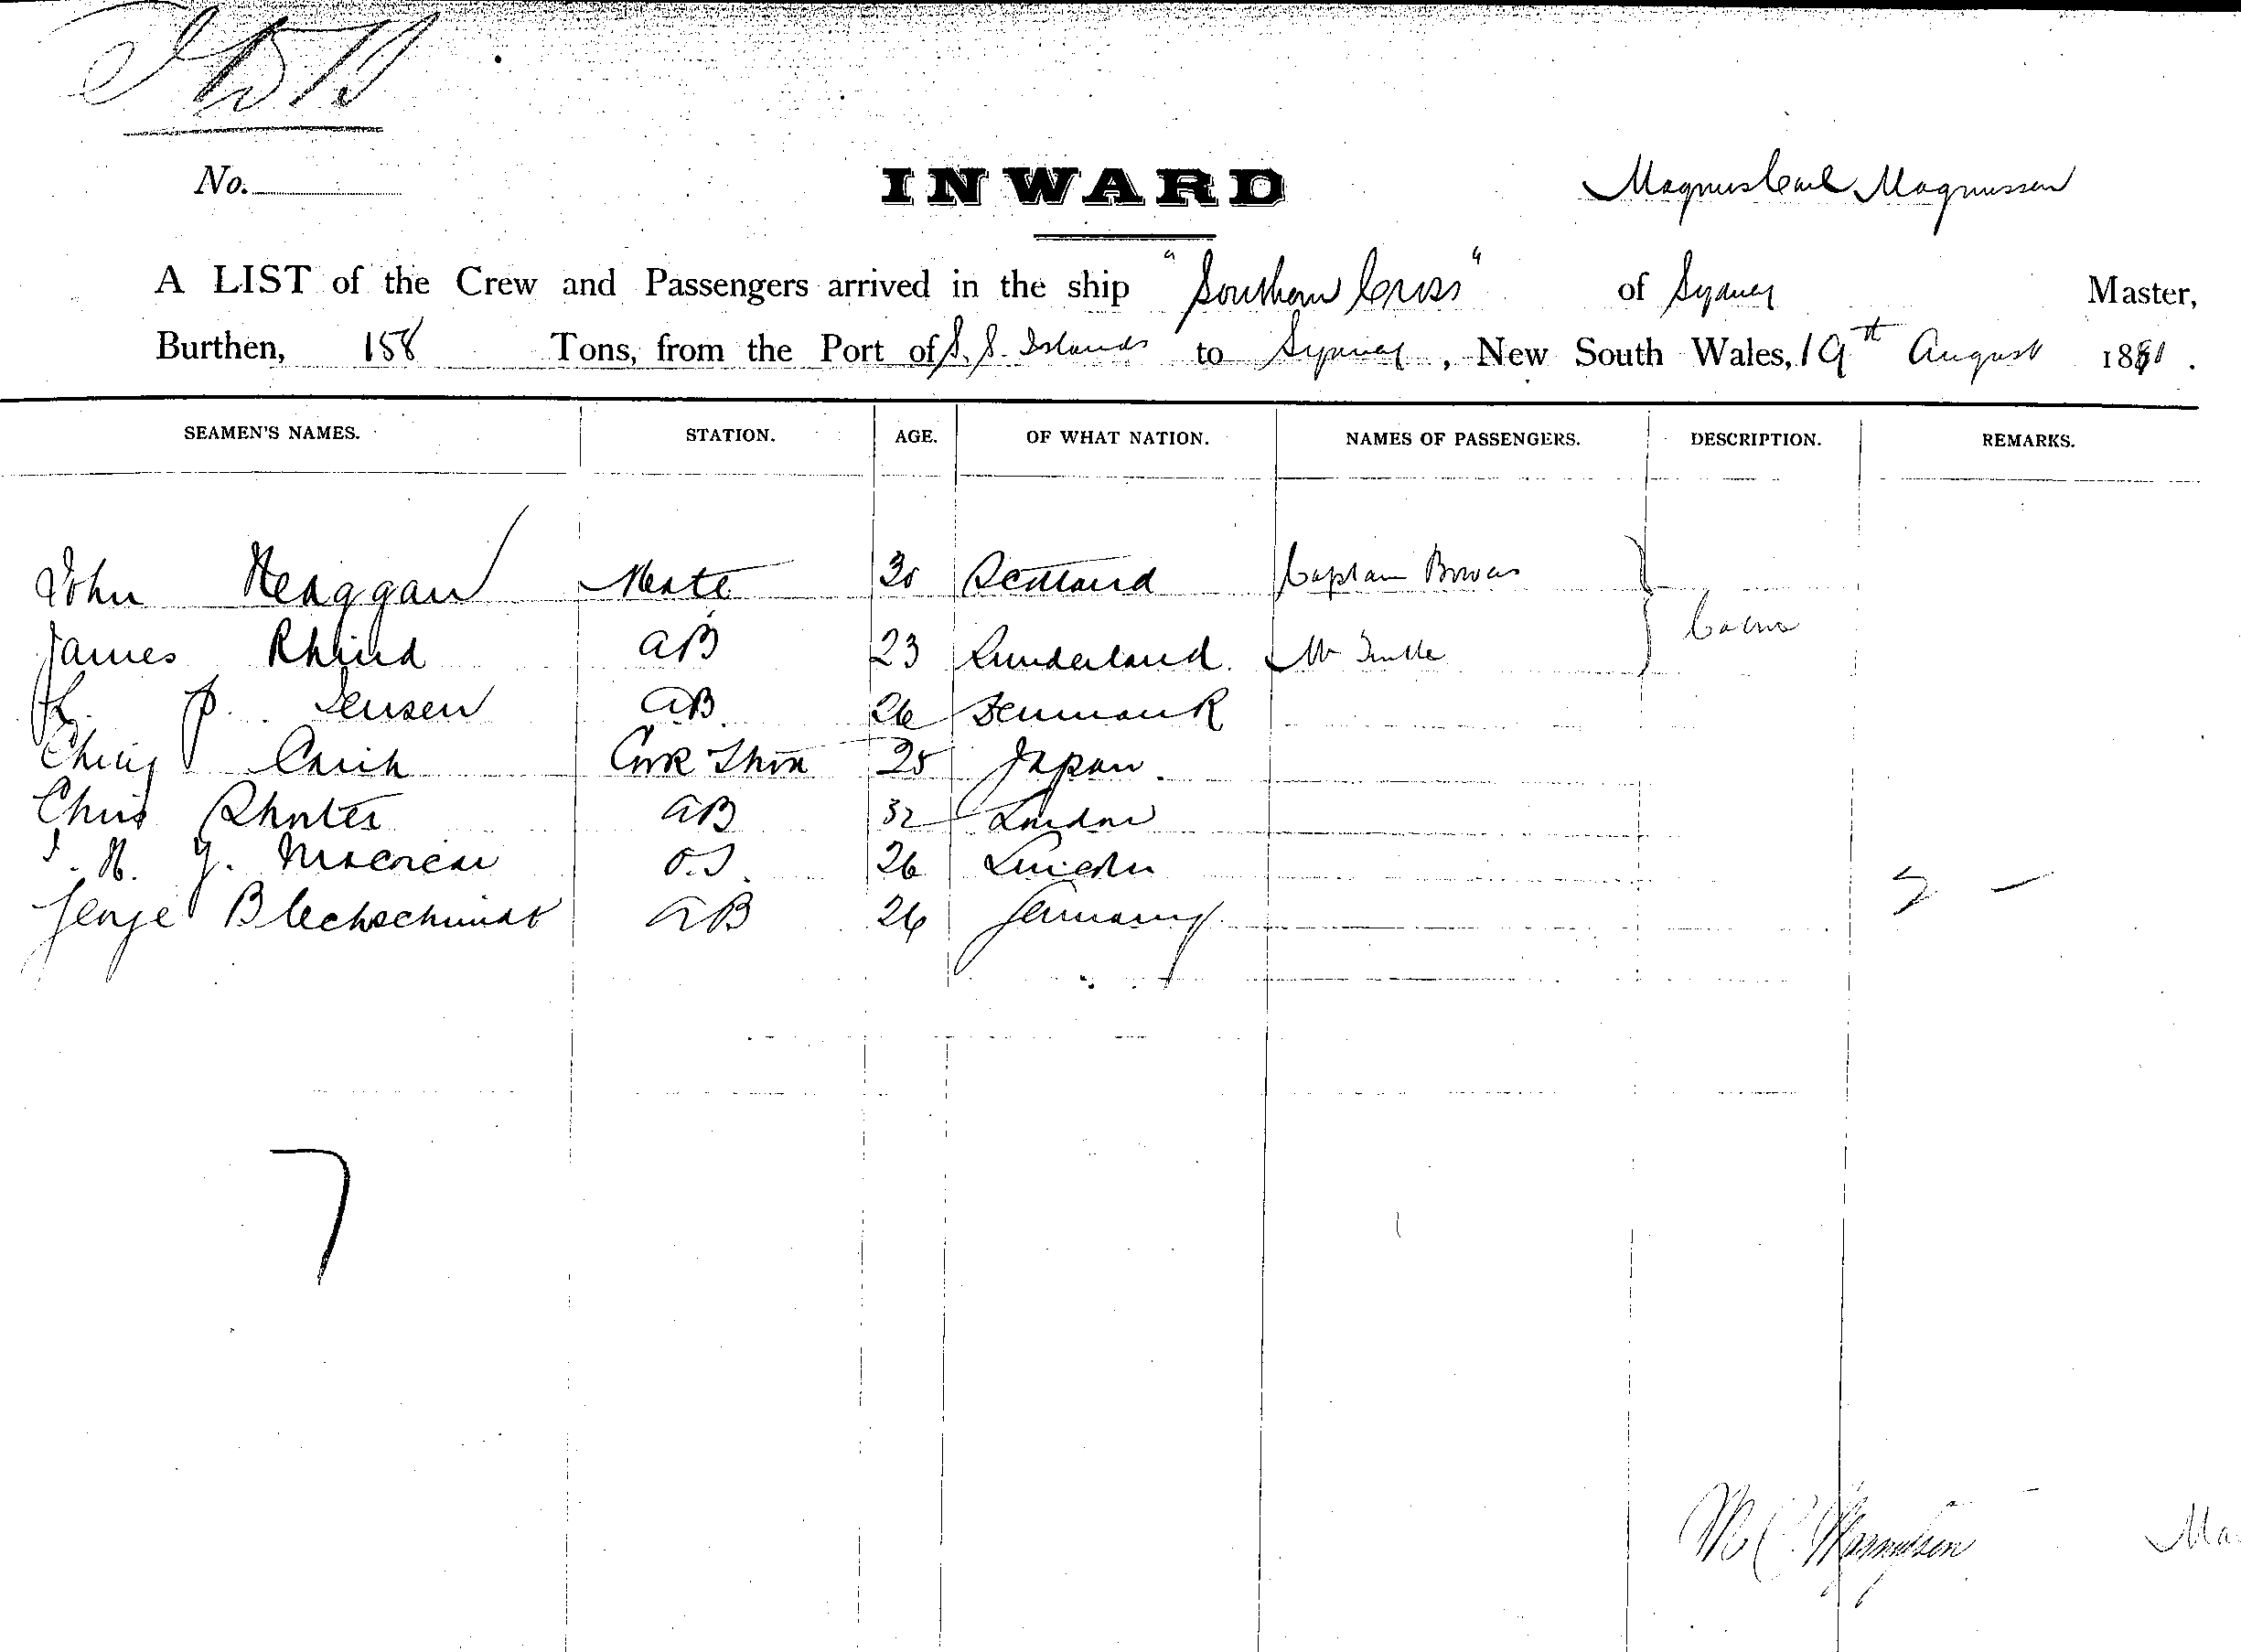 No.
INWARD
Magnus Carl Magnussen
A LIST of the Crew and Passengers arrived in the ship "Southern Cross" of Sydney Master,
Burthen, 158 Tons, from the Port of S. S. Islands to Sydney, New South Wales, 19th August 1891.
SEAMEN'S NAMES. STATION. AGE. OF WHAT NATION. NAMES OF PASSENGERS. DESCRIPTION. REMARKS.
John Mate 30 Scotland Captain
James Rhind AB 23 Sunderland. Mr
P. Jensen AB 26 Denmark
Ching Cook 25 Japan.
Chris AB 32 London
O.S. 26 Lincoln
George Blechschmidt AB 26 Germany.
7
M C Magnussen